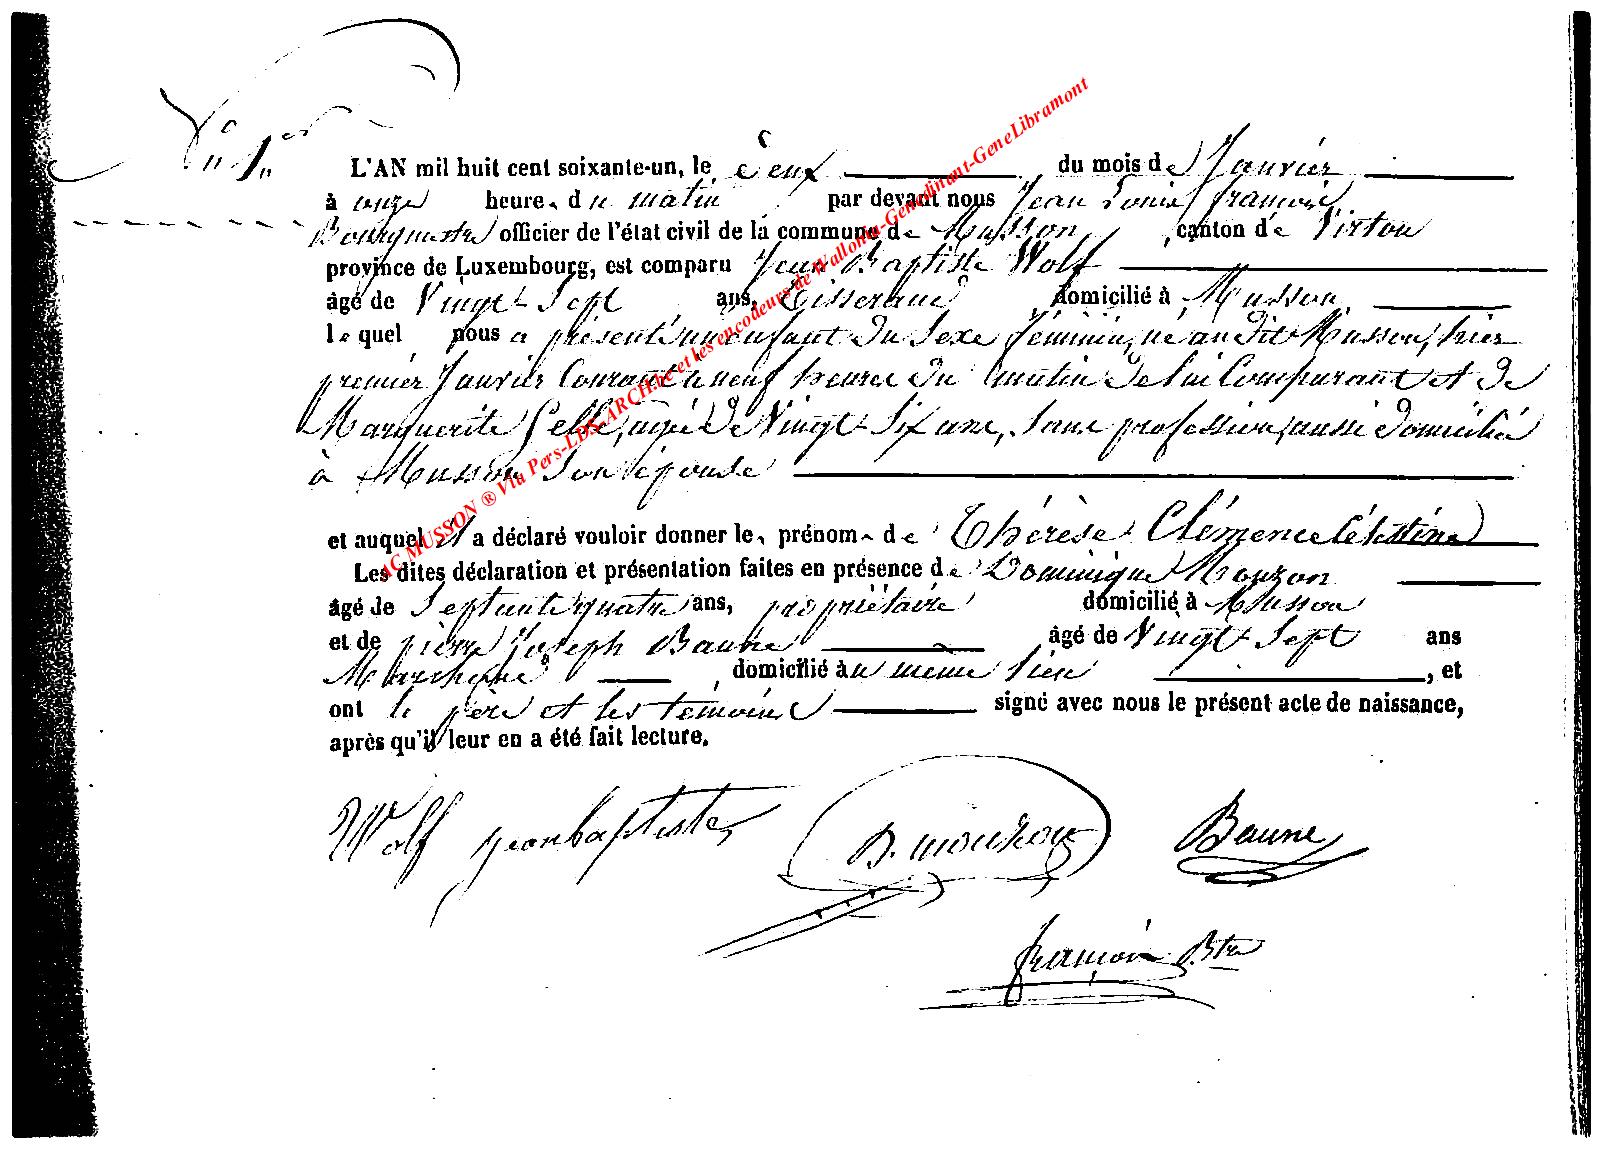 N° 1er
L'AN mil huit cent soixante-un, le deux du mois de Janvier
à onze heure s du matin par devant nous Jean Louis françois
Bourgmestre officier de l'état civil de la commune de Musson, canton de Virton
province de Luxembourg, est comparu Jean Baptiste Wolf
âgé de Vingt Sept ans, Tisserand domicilié à Musson
le quel nous a présenté un enfant du Sexe féminin, né au dit Musson, hier
premier Janvier Courant à neuf heures du matin de lui Comparant et de
Marguerite agée de Vingt Six ans, Sans profession, aussi domiciliée
à Musson Son épouse
et auquel il a déclaré vouloir donner les prénoms de Thérèse Clémence Célestine
Les dites déclaration et présentation faites en présence de Dominique Mouzon
âgé de Septante quatre ans, propriétaire domicilié à Musson
et de pierre Joseph Baune âgé de Vingt Sept ans
domicilié au même lieu, et
ont le père et les témoins signé avec nous le présent acte de naissance,
après qu'il leur en a été fait lecture.
Wolf jean baptiste D. mouzon Baune
françois Btre
AC MUSSON ® Via Pers-LDS-ARCH.be et les encodeurs de Wallonia-Genedinant-GeneLibramont